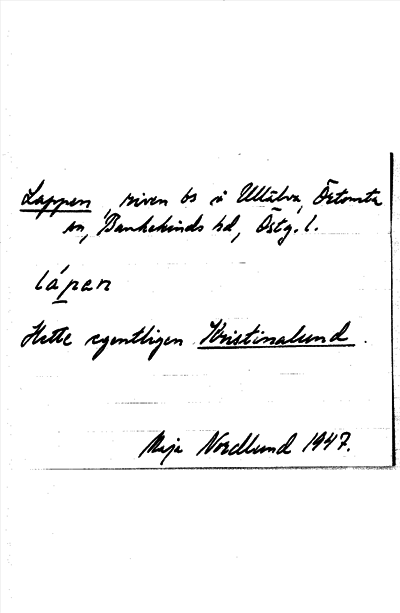 Lappen, riven bs i Ullälva, Örtomta
sn, Bankekinds hd, Östg. l.
lápan
Hette egentligen Kristinalund.
Maja Nordlund 1947.